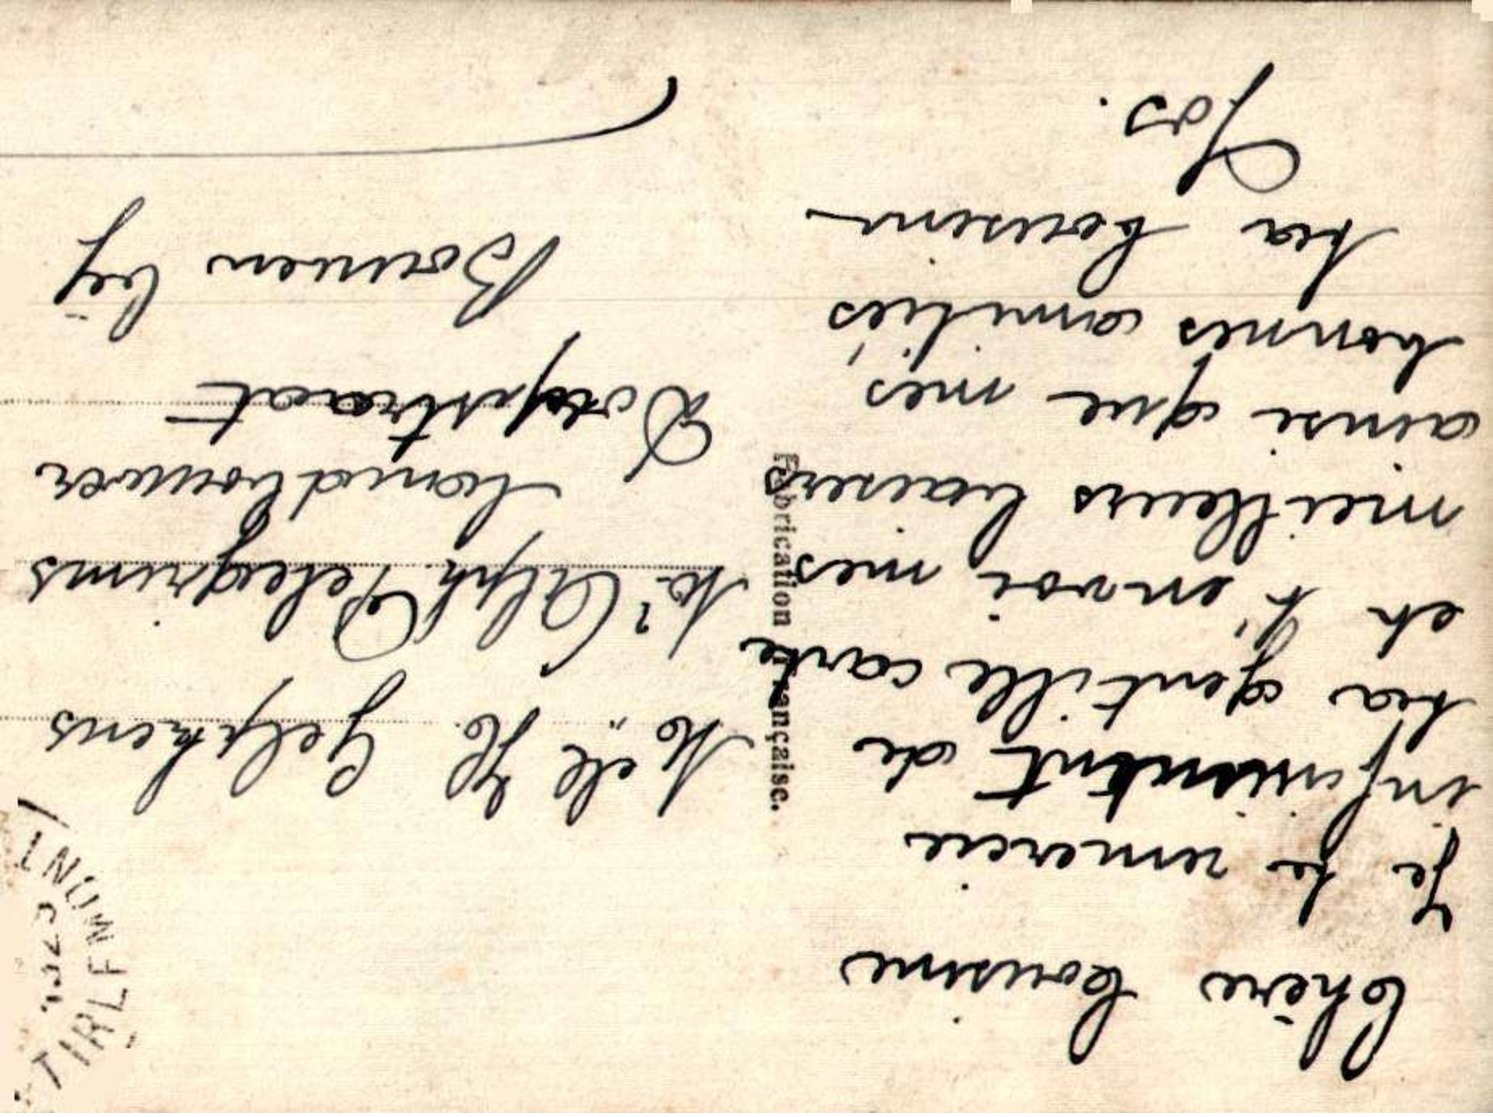 Chère Cousine
Je te remercie
infiniment de
ta gentille carte
et t'envoi mes
meilleurs baisers
ainsi que mes
bonnes amitiés
ta Cousine
Jos.
Fabrication Française.
Melle H. Gelykens
Mr Alph. Pelegrims
Landbouwer
Dorpstraat
Bouwen bij
TIRLEMONT